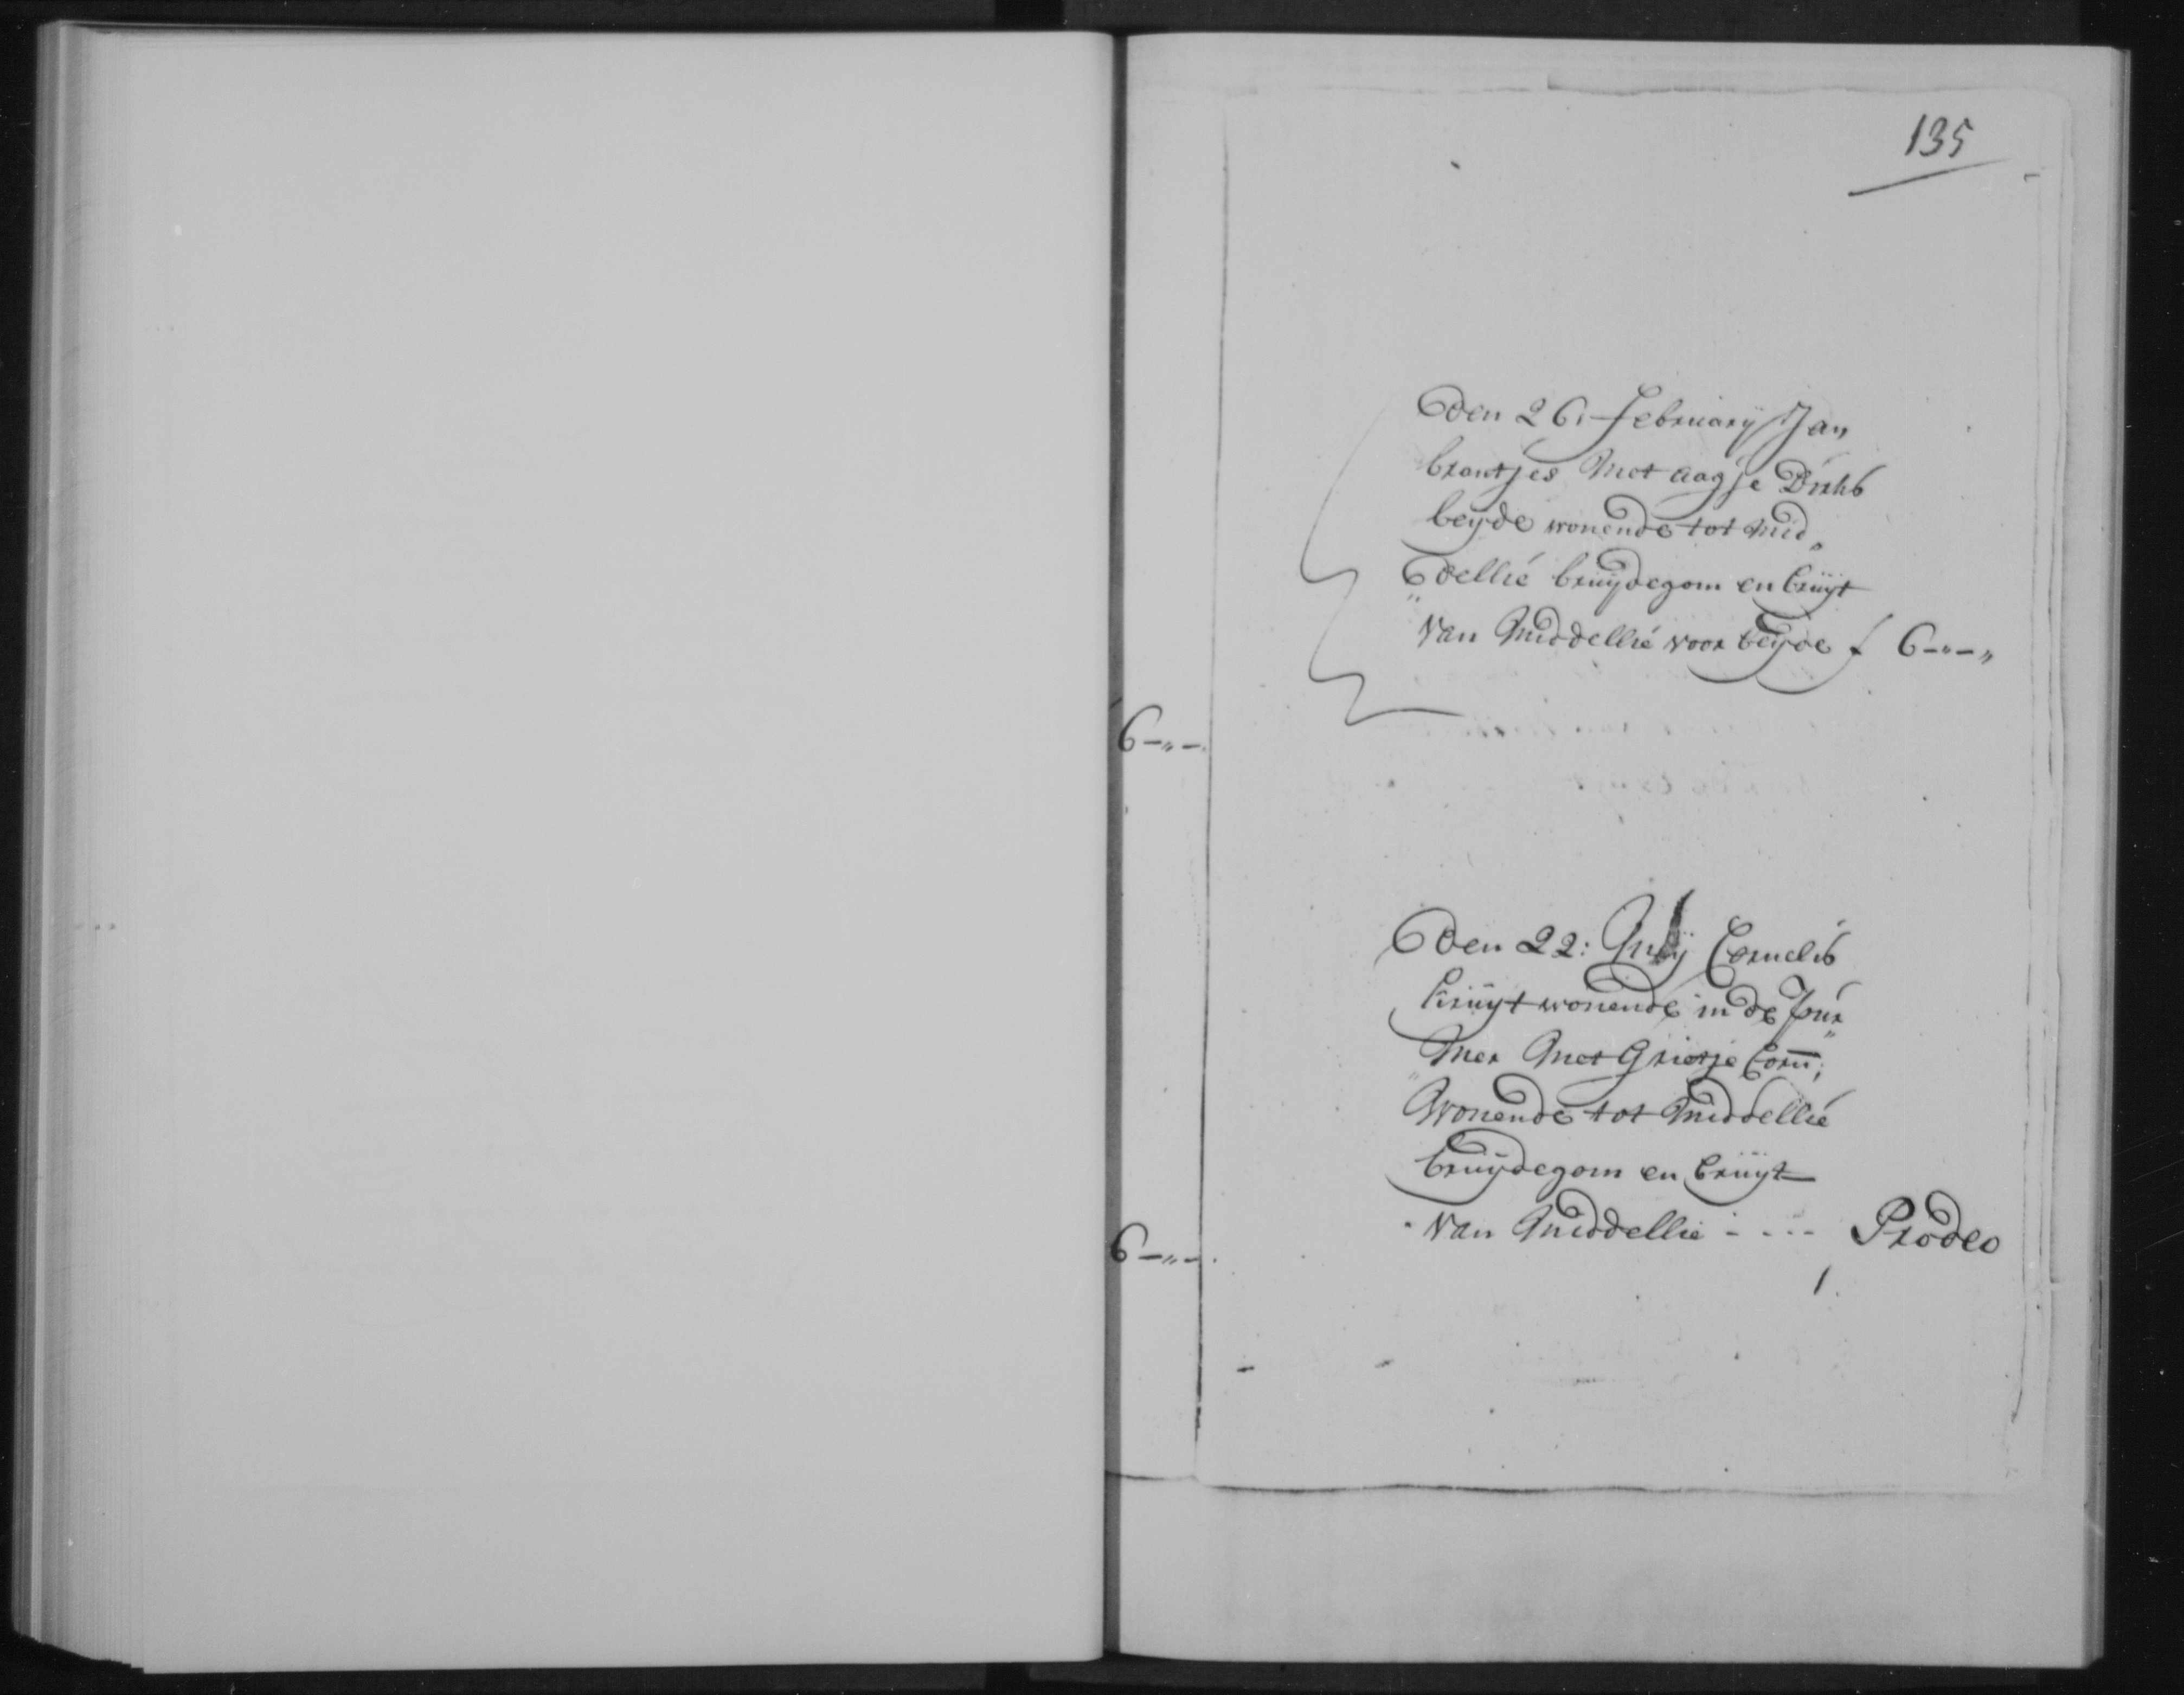 135
Den 26: February Jan
brantjes Met aagje Dirks
beyde wonende tot Mid„
„dellie bruydegom en bruyt
Van Middellie voor beyde f 6-"-"
6-"-
Den 22: July Cornelis
Kruyt wonende in de Pur„
„mer Met Grietje Corn:
Wonende tot Middellie
bruydegom en bruyt
Van Middellie - - - - Prodeo
6-"-